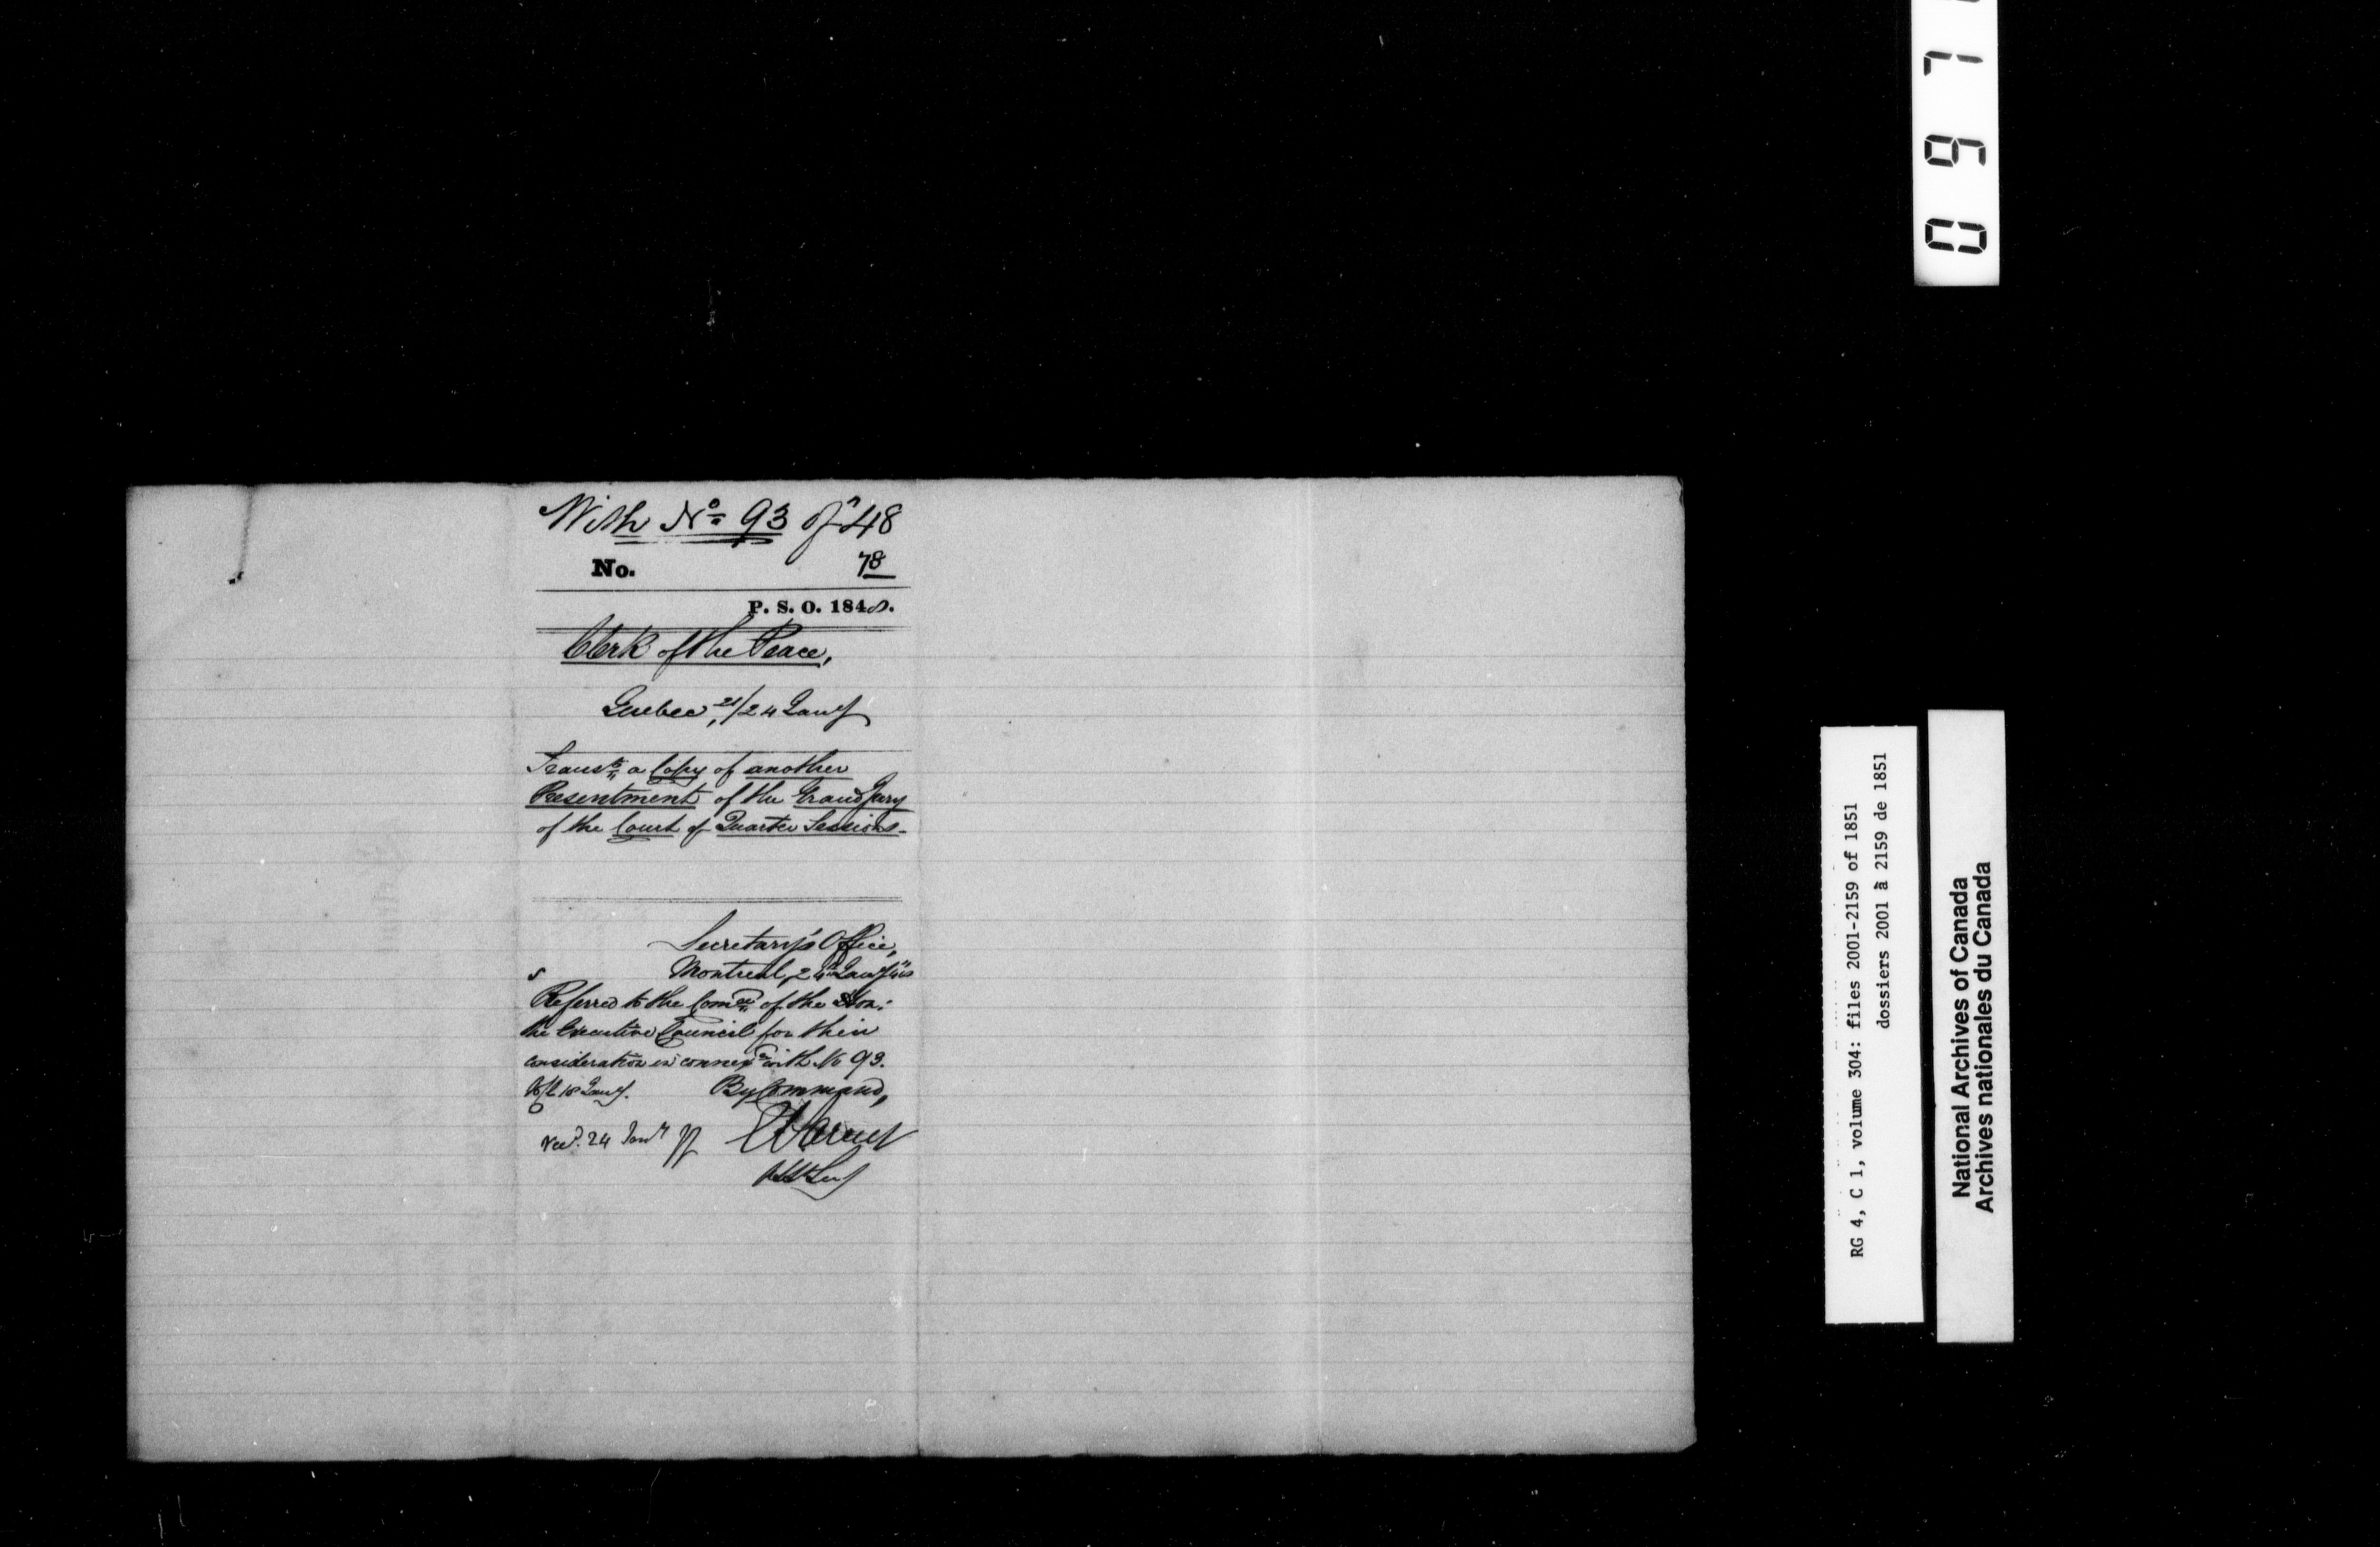 With No 93 of "48
No. 78
P. S. O. 1848.
Clerk of the Peace,
Quebec, 21/24 Jany
Transts a Copy of another
Presentment of the Grand Jury
of the Court of Quarter Sessions.
Secretary's Office,
Montreal, 24th Jany "48
Referred to the Comee of the Hon:
the Executive Council for their
consideration in connexn with No 93.
18 Jany. By Command,
Recd. 24 Jany
Asst Secy
0 9 7
RG 4, C 1, volume 304: files 2001-2159 of 1851
dossiers 2001 à 2159 de 1851
National Archives of Canada
Archives nationales du Canada